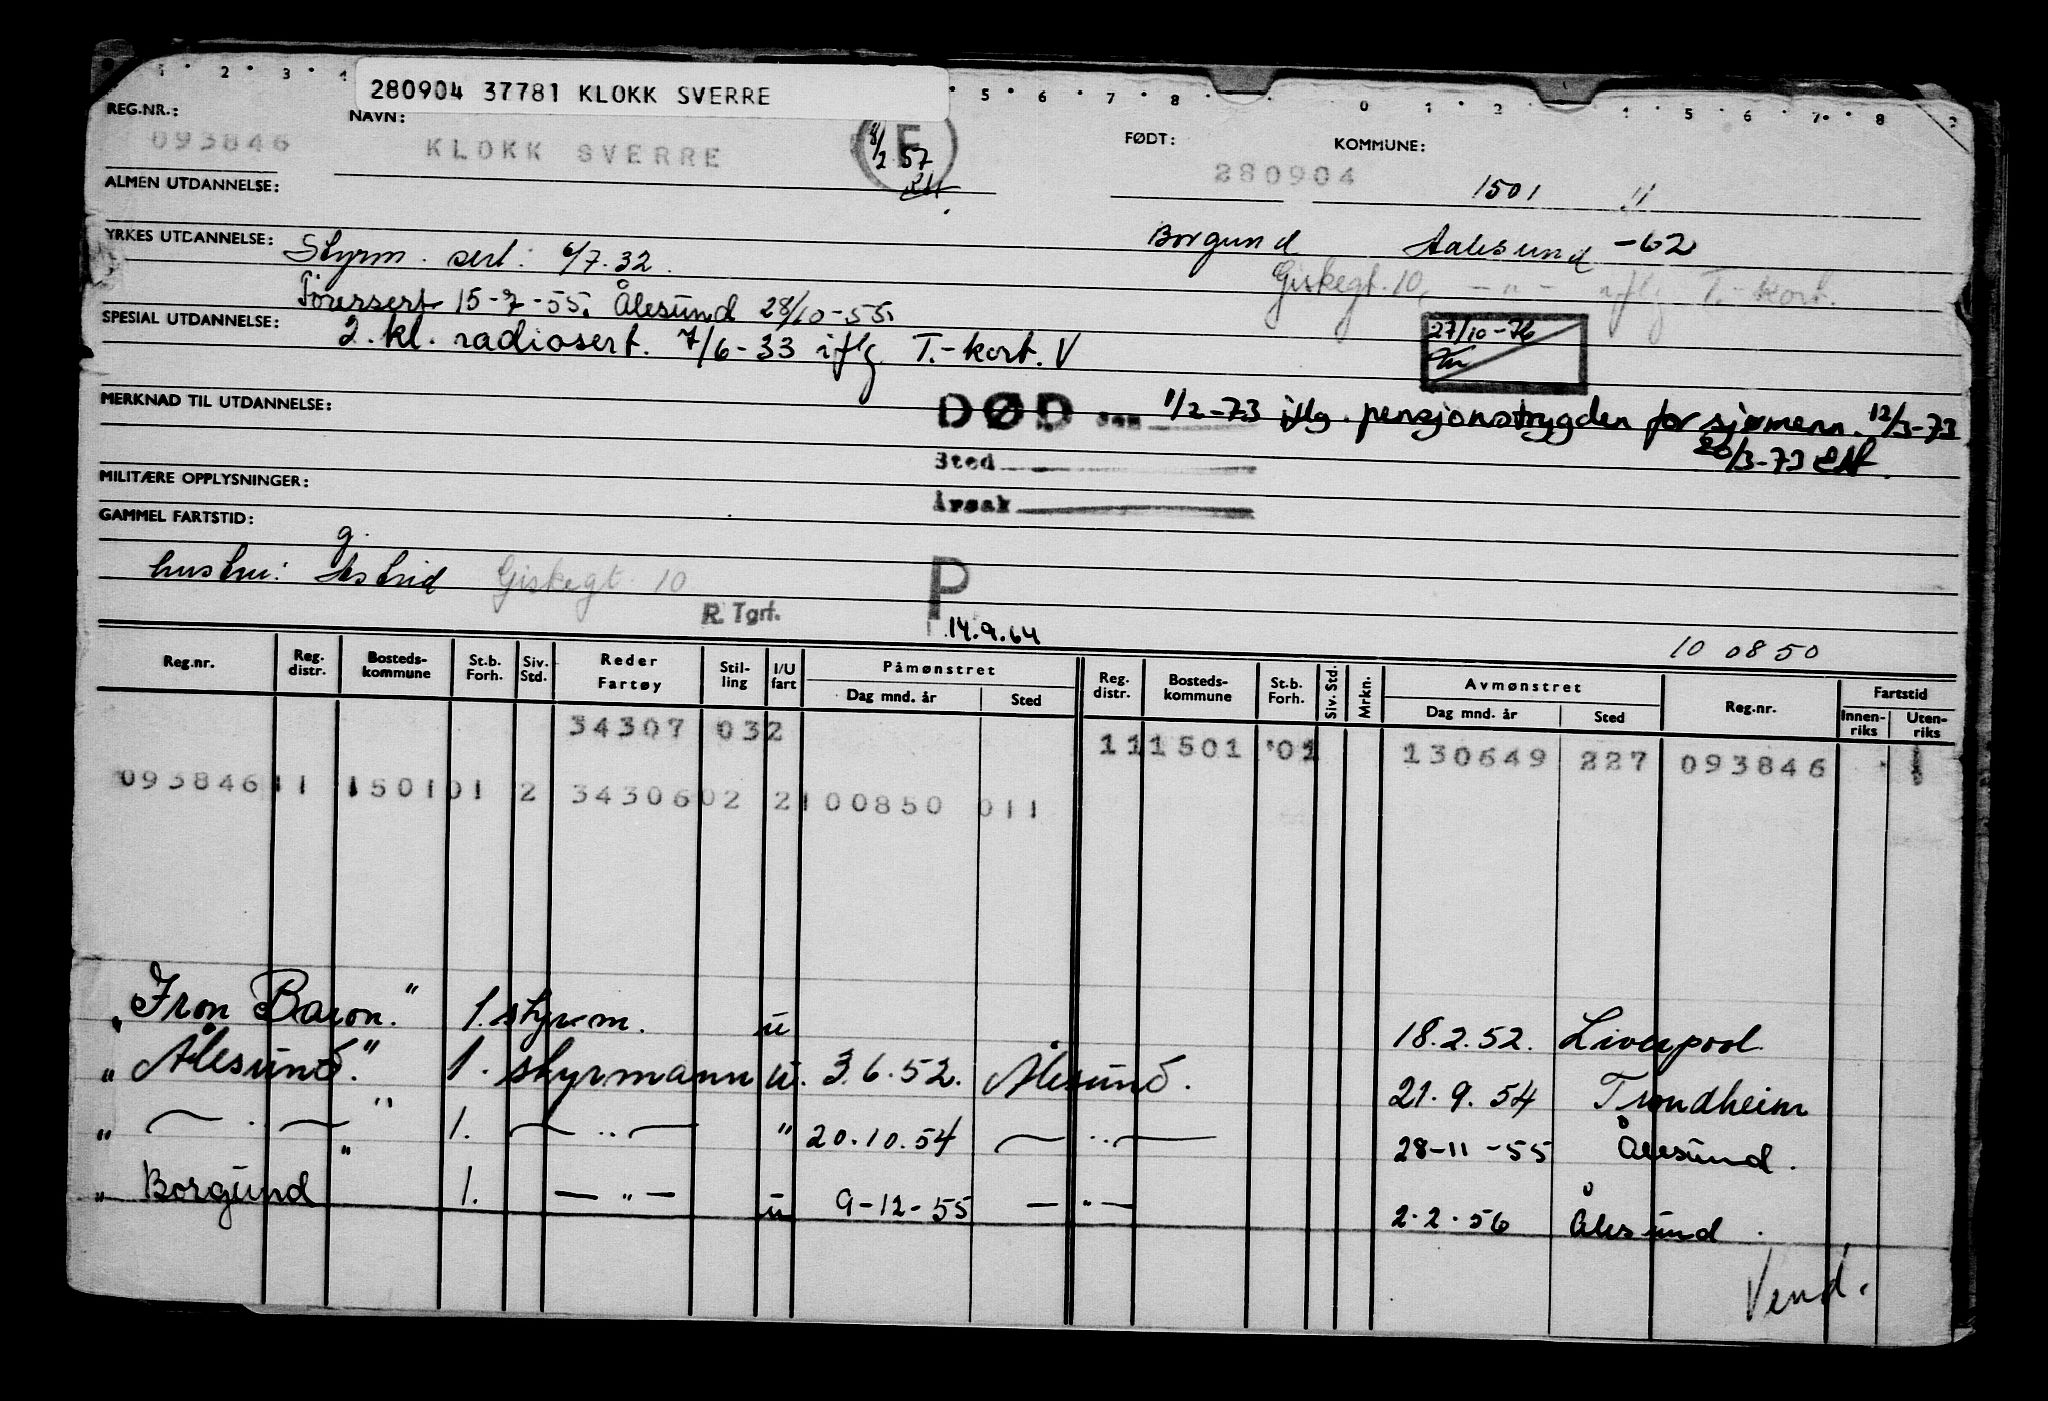 1 2 3 4 5 6 7 8 0 1 2 4 5 6 7 8 2
280904 37781 KLOKK SVERRE
REG.NR.: 093846 NAVN: KLOKK SVERRE FØDT: 280904 KOMMUNE: 1501 11
E 8/2 57
ALMEN UTDANNELSE:
Borgund Aalesund -62
YRKES UTDANNELSE: Styrm. sert: 6/7.32.
Giskegt. 10, — " — iflg T.-kort.
Førersert 15-7-55. Ålesund 28/10-55.
SPESIAL UTDANNELSE: 2. kl. radiosert. 7/6-33 iflg T.-kort. V
27/10-76
MERKNAD TIL UTDANNELSE:
DØD den 1/2-73 iflg. pensjonstrygden for sjømenn. 12/3-73
Sted 20/3-73
MILITÆRE OPPLYSNINGER:
Årsak
GAMMEL FARTSTID:
g.
hustru: Astrid Giskegt. 10
R. Tgrf. P 14.9.64
10 08 50
Reg.nr. Reg. distr. Bosteds-kommune St.b. Forh. Siv. Std. Reder Fartøy Stil-ling I/U fart Påmønstret Dag mnd. år Sted Reg. distr. Bosteds-kommune St.b. Forh. Siv. Std. Mrkn. Avmønstret Dag mnd. år Sted Reg.nr. Fartstid Innen-riks Uten-riks
34307 032 11 1501 01 130649 227 093846 1
093846 11 1501 01 2 34306 02 2 100850 011
„ Iron Baron." 1. styrm. u 18.2.52. Liverpool
„ Ålesund." 1. styrmann u. 3.6.52. Ålesund. 21.9.54 Trondheim
„ — . — " 1. — .. — " 20.10.54 — .. — 28-11-55 Ålesund.
„ Borgund " 1. — " — u 9-12-55 — " — 2.2.56 Ålesund.
Vend.